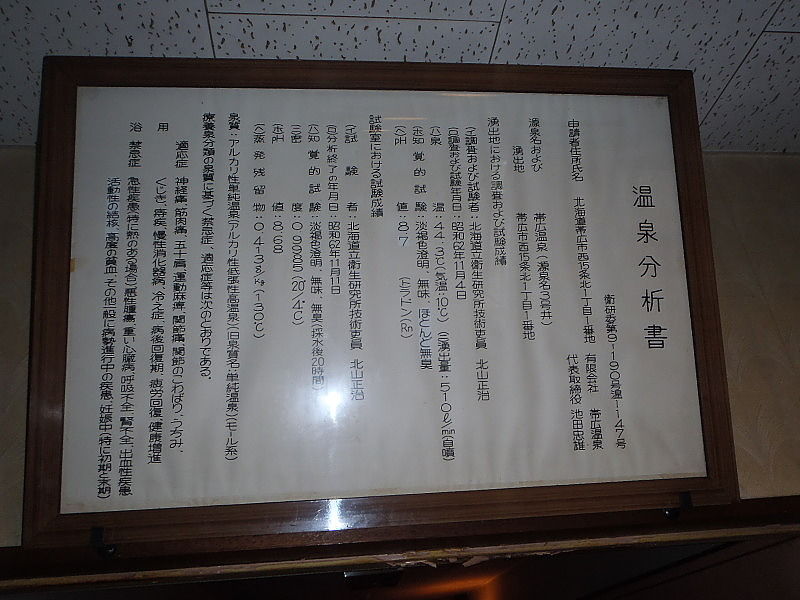 温泉分析書
衛研委第9-190号温-147号
申請者住所氏名 北海道帯広市西15条北1丁目1番地 有限会社 帯広温泉
代表取締役 池田忠雄
源泉名および 帯広温泉
湧出地 帯広市西15条北1丁目1番地
湧出地における調査および試験成績
(イ)調査および試験者:北海道立衛生研究所技術吏員 北山正治
(ロ)調査および試験年月日:昭和62年11月4日
(ハ)泉温:44.3℃(気温-10℃) (ニ)湧出量:510ℓ/min(自噴)
(ホ)知覚的試験:淡褐色澄明、無味、ほとんど無臭
(ヘ)PH値:8.7 (ト)ラドン(Rn)
試験室における試験成績
(イ)試験者:北海道立衛生研究所技術吏員 北山正治
(ロ)分析終了の年月日:昭和62年11月11日
(ハ)知覚的試験:淡褐色澄明、無味、無臭(採水後20時間)
(ニ)密度:0.9985(20°/4℃)
(ホ)PH値:8.68
(ヘ)蒸発残留物:0.413g/kg(130℃)
泉質:アルカリ性単純温泉(アルカリ性低張性高温泉)(旧泉質名:単純温泉)(モール系)
療養泉分類の泉質に基づく禁忌症、適応症等は次のとおりである。
適応症 神経痛、筋肉痛、五十肩、運動麻痺、関節痛、関節のこわばり、うちみ、
用 くじき、痔疾、慢性消化器病、冷え症、病後回復期、疲労回復、健康増進
浴 禁忌症 急性疾患(特に熱のある場合)、悪性腫瘍、重い心臓病、呼吸不全、腎不全、出血性疾患、
活動性の結核、高度の貧血、その他一般に病勢進行中の疾患、妊娠中(特に初期と末期)